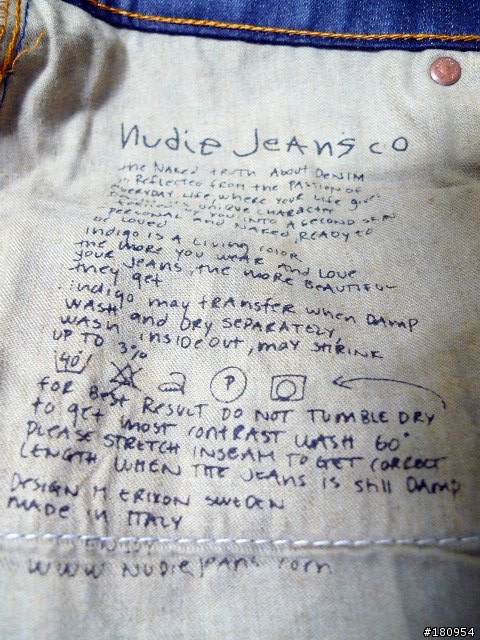 nudie Jeans co
the NAKED truth About DENIM
Reflected from the PASSION of
EVERYDAY LIFE, where your LIFE
CHARACTER
INTO A SECOND SKIN
PERSONAL and NAKED, READY to
be LOVED
indigo is A Living color
the more you WEAR AND LOVE
your JEANS, the more BEAUTIFUL
they get
indigo may tRANSfer when DAMP
WASH and DRY SEPARATELY,
WASH insideout, may SHRINK
UP TO 3%
40° P
for BEST RESULT DO NOT TUMBLE DRY
to get most CONTRAST WASH 60°
PLEASE STRETCH INSEAM TO GET CORRECT
LENGTH WHEN THE JEANS is still DAMP
DESIGN M ERIXON SWEDEN
MADE in ITALY
ENJOY
www nudiejeans com
#180954